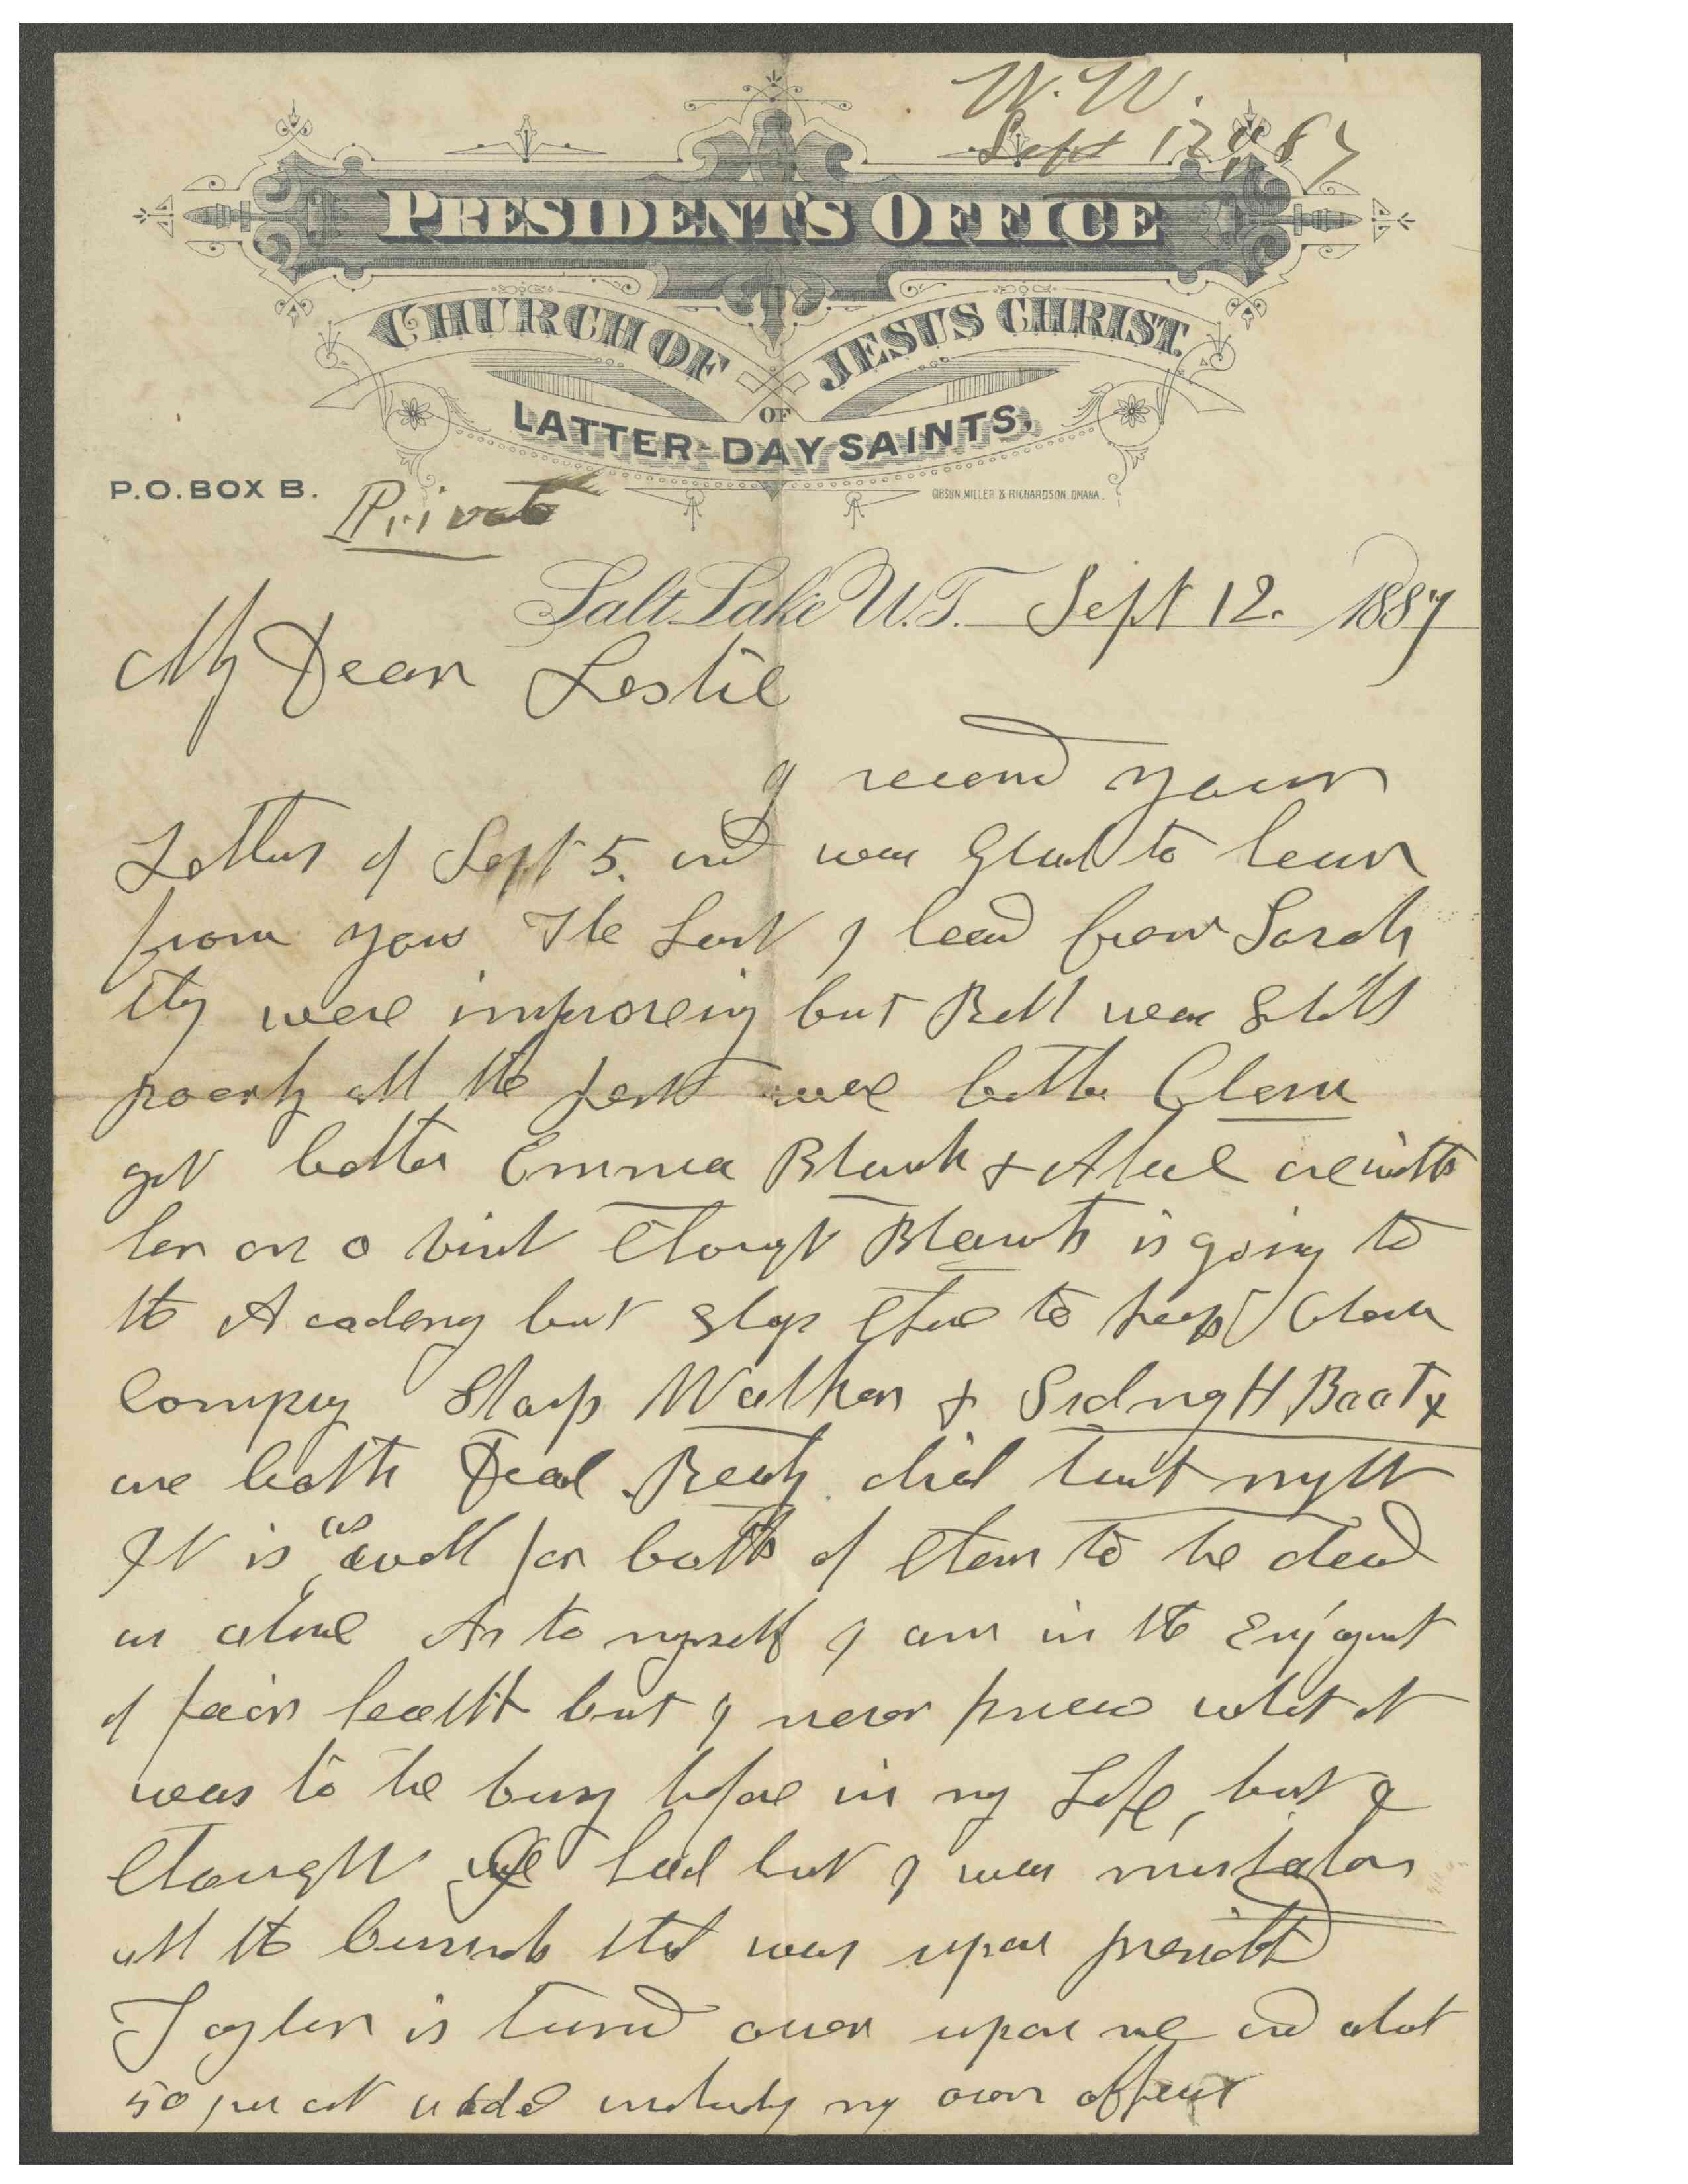 W. W.
Sept 12 1887
PRESIDENT'S OFFICE
CHURCH OF JESUS CHRIST
OF
LATTER-DAY SAINTS.
P.O. BOX B.
GIBSON, MILLER & RICHARDSON, OMAHA.
Private
Salt Lake U.T. Sept 12. 1887
My Dear Leslie
I receivd your
Letters of Sept 5. and was Glad to hear
from you The Last I heard from Sarah
they were improveing but Bell was Still
poorly all the rest were better Clara
got better Emma Blanch & are with
her on a visit though Blanch is going to
the Academy but stops there to keep Clara
Company Sharp Walker & Sidney H Baaty
are both Dead Beaty died last night
It is as well for both of them to be dead
as alive As to myself I am in the Enjoymt
of fair health but I never knew what it
was to be busy before in my Life, but I
thought I had but I was mistaken
all the buisness that was upon presidt
Taylor is turnd over upon me and about
50 per ct added includig my own